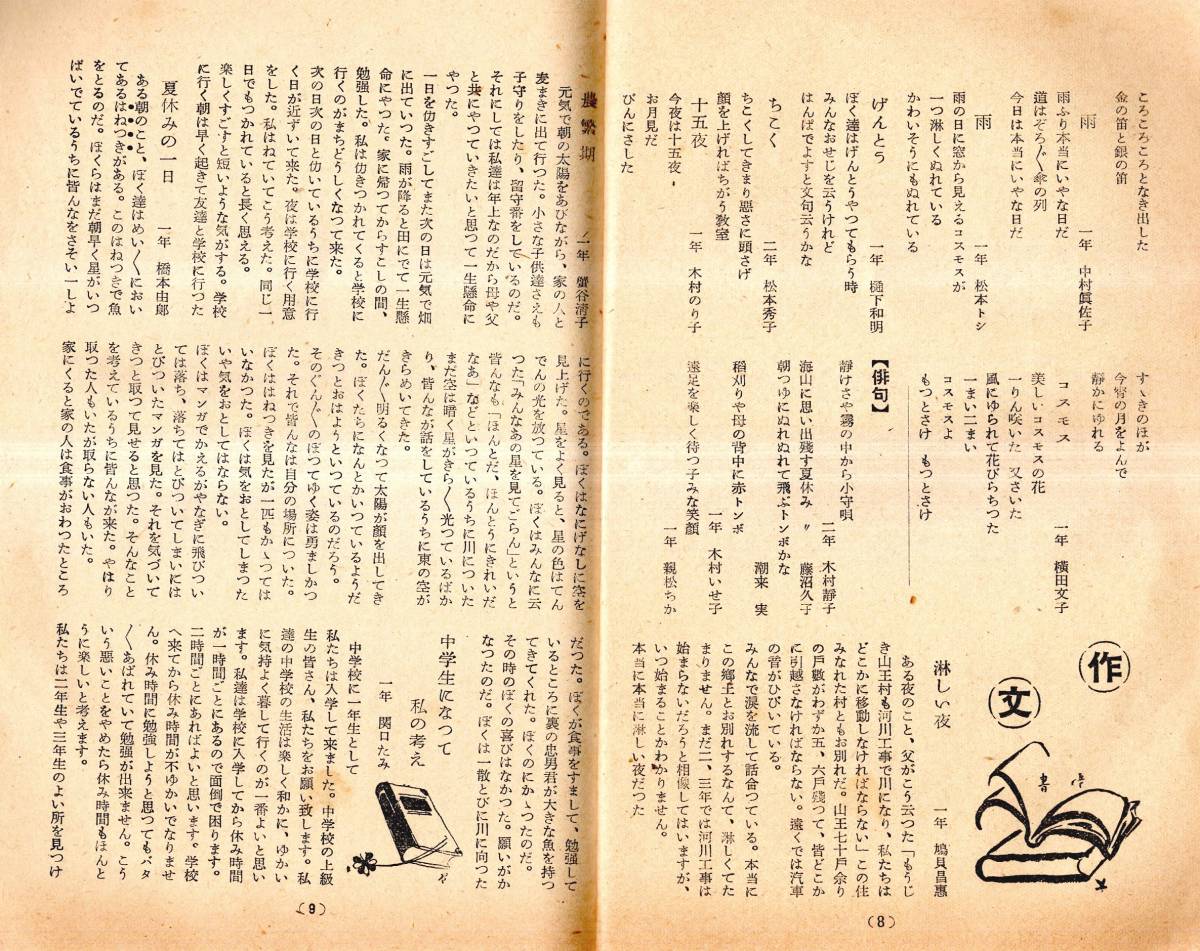 ころころころとなき出した
金の笛と銀の笛
雨
一年 中村眞佐子
雨ふり本当にいやな日だ
道はぞろ〳〵傘の列
今日は本当にいやな日だ
雨
一年 松本トシ
雨の日に窓から見えるコスモスが
一つ淋しくぬれている
かわいそうにもぬれている
げんとう
一年 樋下和明
ぼく達はげんとうやつてもらう時
みんなおせじを云うけれど
はんぱでよすと文句云うかな
ちこく
二年 松本秀子
ちこくしてきまり悪さに頭さげ
顔を上げればちがう教室
十五夜
一年 木村のり子
今夜は十五夜
お月見だ
びんにさした
すゝきのほが
今宵の月をよんで
静かにゆれる
コスモス
一年 横田文子
美しいコスモスの花
一りん咲いた 又さいた
風にゆられて花びらちつた
一まい二まい
コスモスよ
もつとさけ もつとさけ
【俳句】
静けさや霧の中から小守唄
二年 木村静子
海山に思い出残す夏休み
〃 藤沼久子
朝つゆにぬれぬれて飛ぶトンボかな
潮来 実
稲刈りや母の背中に赤トンボ
一年 木村いせ子
遠足を楽しく待つ子みな笑顔
一年 親松ちか
作文
淋しい夜
一年 鳩貝昌惠
ある夜のこと、父がこう云つた「もうじ
き山王村も河川工事で川になり、私たちは
どこかに移動しなければならない」この住
みなれた村ともお別れだ。山王七十戸余り
の戸数がわずか五、六戸残つて、皆どこか
に引越さなければならない。遠くでは汽車
の音がひびいている。
みんなで涙を流して話合つている。本当に
この郷土とお別れするなんて、淋しくてた
まりません。まだ二、三年では河川工事は
始まらないだろうと相像してはいますが、
いつ始まることかわかりません。
本当に本当に淋しい夜だつた
(8)
農繁期
一年 蟹谷清子
元気で朝の太陽をあびながら、家の人と
麦まきに出て行つた。小さな子供達さえも
子守りをしたり、留守番をしているのだ。
それにしては私達は年上なのだから母や父
と共にやつていきたいと思つて一生懸命に
やつた。
一日を仂きすごしてまた次の日は元気で畑
に出ていつた。雨が降ると田にでて一生懸
命にやつた。家に帰つてからすこしの間、
勉強した。私は仂きつかれてくると学校に
行くのがまちどうしくなつて来た。
次の日次の日と仂いているうちに学校に行
く日が近ずいて来た。夜は学校に行く用意
をした。私はねていてこう考えた。同じ一
日でもつかれていると長く思える。
楽しくすごすと短いような気がする。学校
に行く朝は早く起きて友達と学校に行つた
夏休みの一日
一年 橋本由郎
ある朝のこと、ぼく達はめい〳〵におい
てあるはねつきがある。このはねつきで魚
をとるのだ。ぼくらはまだ朝早く星がいつ
ぱいでているうちに皆んなをさそい一しよ
に行くのである。ぼくはなにげなしに空を
見上げた。星をよく見ると、星の色はてん
でんの光を放つている。ぼくはみんなに云
つた「みんなあの星を見てごらん」というと
皆んなも「ほんとだ、ほんとうにきれいだ
なあ」などといつているうちに川についた
まだ空は暗く星がきら〳〵光つているばか
り、皆んなが話をしているうちに東の空が
きらめいてきた。
だん〴〵明るくなつて太陽が顔を出してき
た。ぼくたちになんとかいつているようだ
きつとおはようといつているのだろう。
そのぐん〴〵のぼつてゆく姿は勇ましかつ
た。それで皆んなは自分の場所についた。
ぼくははねつきを見たが一匹もかゝつては
いなかつた。ぼくは気をおとしてしまつた
いや気をおとしてはならない。
ぼくはマンガでかえるがやなぎに飛びつい
ては落ち、落ちてはとびついてしまいには
とびついたマンガを見た。それを気づいて
きつと取つて見せると思つた。そんなこと
を考えているうちに皆んなが来た。やはり
取つた人もいたが取らない人もいた。
家にくると家の人は食事がおわつたところ
だつた。ぼくが食事をすまして、勉強して
いるところに裏の忠男君が大きな魚を持つ
てきてくれた。ぼくのにかゝつたのだ。
その時のぼくの喜びはなかつた。願いがか
なつたのだ。ぼくは一散とびに川に向つた
中学生になつて
私の考え
一年 関口たみ
中学校に一年生として
私たちは入学して来ました。中学校の上級
生の皆さん、私たちをお願い致します。私
達の中学校の生活は楽しく和かに、ゆかい
に気持よく暮して行くのが一番よいと思い
ます。私達は学校に入学してから休み時間
が一時間ごとにあるので面倒で困ります。
二時間ごとにあればよいと思います。学校
へ来てから休み時間が不ゆかいでなりませ
ん。休み時間に勉強しようと思つてもバタ
〳〵あばれていて勉強が出来ません。こう
いう悪いことをやめたら休み時間もほんと
うに楽しいと考えます。
私たちは二年生や三年生のよい所を見つけ
(9)